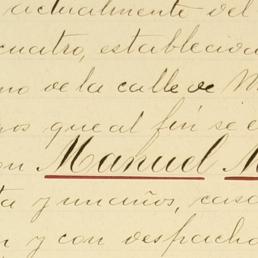 actualmente del
cuatro, establecida
no de la calle de
que al fin se
Manuel
ta y un años, casa
y con despacho